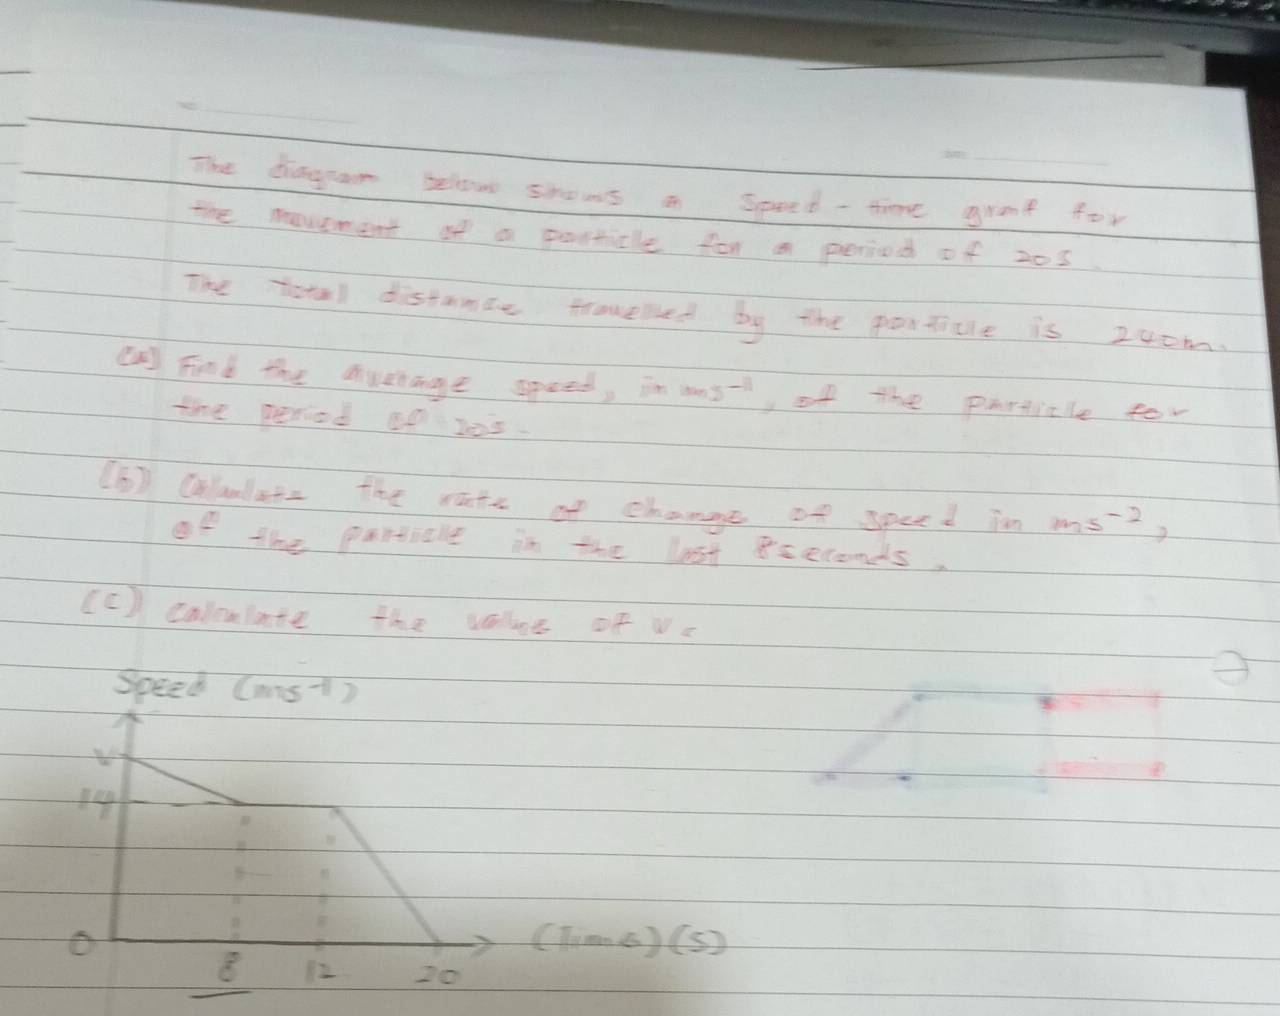 The diagram below shows a Speed - time graf for
the movement of a particle for a period of 20s.
The total distance travelled by the particle is 240m.
(a) Find the average speed, in ms⁻¹, of the particle for
the period of 20s.
(b) Calculate the rate of change of speed in ms⁻²,
of the particle in the last 8seconds.
(c) calculate the value of v.
Speed (ms⁻¹)
v
14
0
8
12
20
(Time) (s)